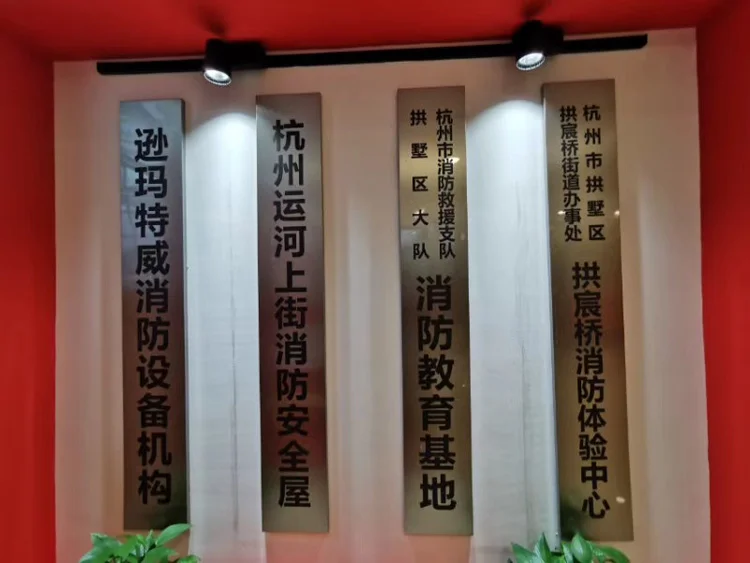 逊玛特威消防设备机构
杭州运河上街消防安全屋
杭州市消防救援支队
拱墅区大队
消防教育基地
杭州市拱墅区
拱宸桥街道办事处
拱宸桥消防体验中心